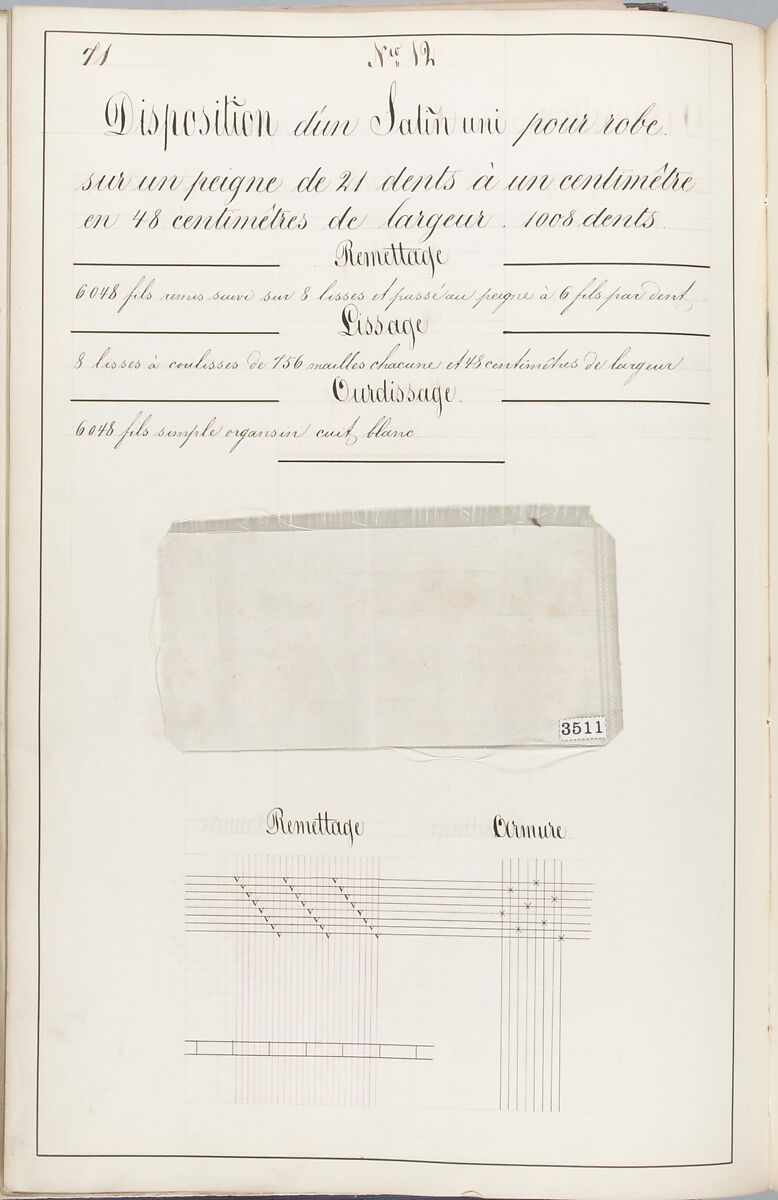 71
Nro 12
Disposition d'un Satin uni pour robe.
sur un peigne de 21 dents à un centimêtre
en 48 centimêtres de largeur. 1008 dents.
Remettage
6048 fils remis suivi sur 8 lisses et passé au peigne à 6 fils par dent
Lissage
8 lisses à coulisses de 756 mailles chacune et 48 centimêtres de largeur
Ourdissage.
6048 fils simple organsin cuit blanc
3511
Remettage
Armure.